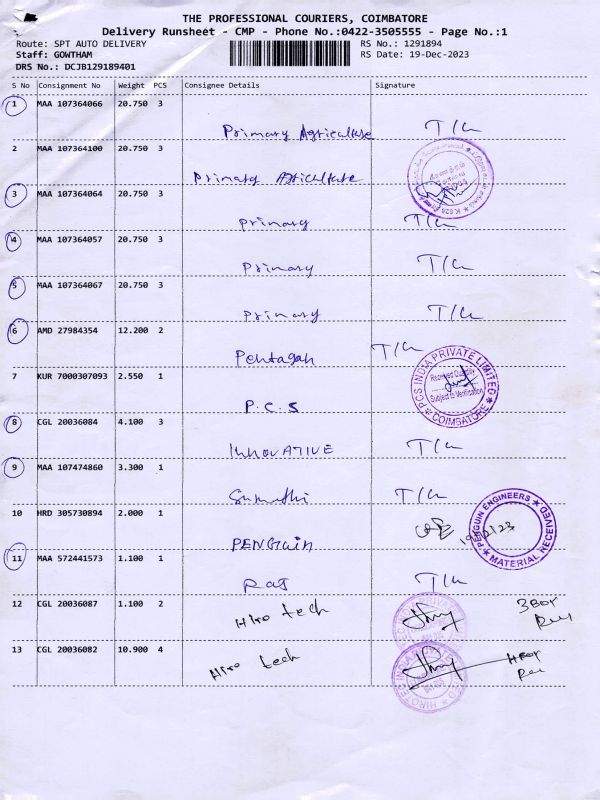 THE PROFESSIONAL COURIERS, COIMBATORE
Delivery Runsheet - CMP - Phone No.:0422-3505555 - Page No.:1
Route: SPT AUTO DELIVERY
RS No.: 1291894
Staff: GOWTHAM
RS Date: 19-Dec-2023
DRS No.: DCJB129189401
S No Consignment No Weight PCS Consignee Details Signature
1 MAA 107364066 20.750 3
Primary Agriculture T/C
2 MAA 107364100 20.750 3
Primary Agriculture
3 MAA 107364064 20.750 3
Primary T/C
4 MAA 107364057 20.750 3
Primary T/C
5 MAA 107364067 20.750 3
Primary T/C
6 AMD 27984354 12.200 2
Pentagan T/C
PCS INDIA PRIVATE LIMITED
Received Quantity
Subject to Verification
COIMBATORE
7 KUR 7000307093 2.550 1
P.C.S
8 CGL 20036084 4.100 3
INNOVATIVE T/C
9 MAA 107474860 3.300 1
Sumathi T/C
10 HRD 305730894 2.000 1
PENGUIN
PENGUIN ENGINEERS
MATERIAL RECEIVED
11 MAA 572441573 1.100 1
Raj T/C
12 CGL 20036087 1.100 2
Hiro tech
3 Box
13 CGL 20036082 10.900 4
Hiro tech